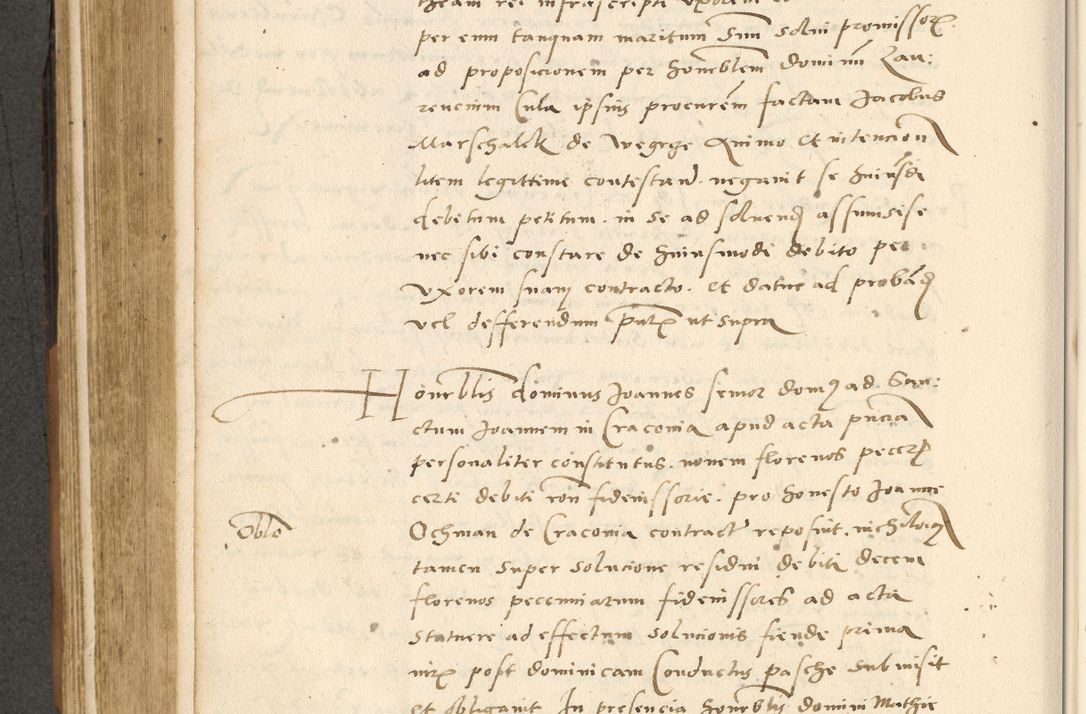 per eum tanquam maritum suum solui promissor
ad proposicionem per honorblem dominum Lau:
rencium Cula ipsius procurem factam Jacobus
Marschalek de Wegrge animo et intencion
litem legittime contestand. negauit se huiusdi
debitum petitum. in se ad soluend assumsise
nec sibi constare de huiusmodi debito per
vxorem suam contracto. et datur ad proband
vel defferendum ut supra
Honorblis dominus Joannes senior domus ad San:
ctum Joannem in Craconia apud acta pncia
personaliter constitutus. nouem florenos pecc
certi debiti ron fideiussorie. pro honesto Joanne
Ochman de Craconia contract reposuit. nichilomi
Oblo
tamen super solucione residui debiti decem
florenos pecuniarum fideiussores ad acta
statuere ad effectum solucionis fiende prima
iurx post dominicam Conductus pasche submisit
et obligauit In presencia honorblis domini Mathie